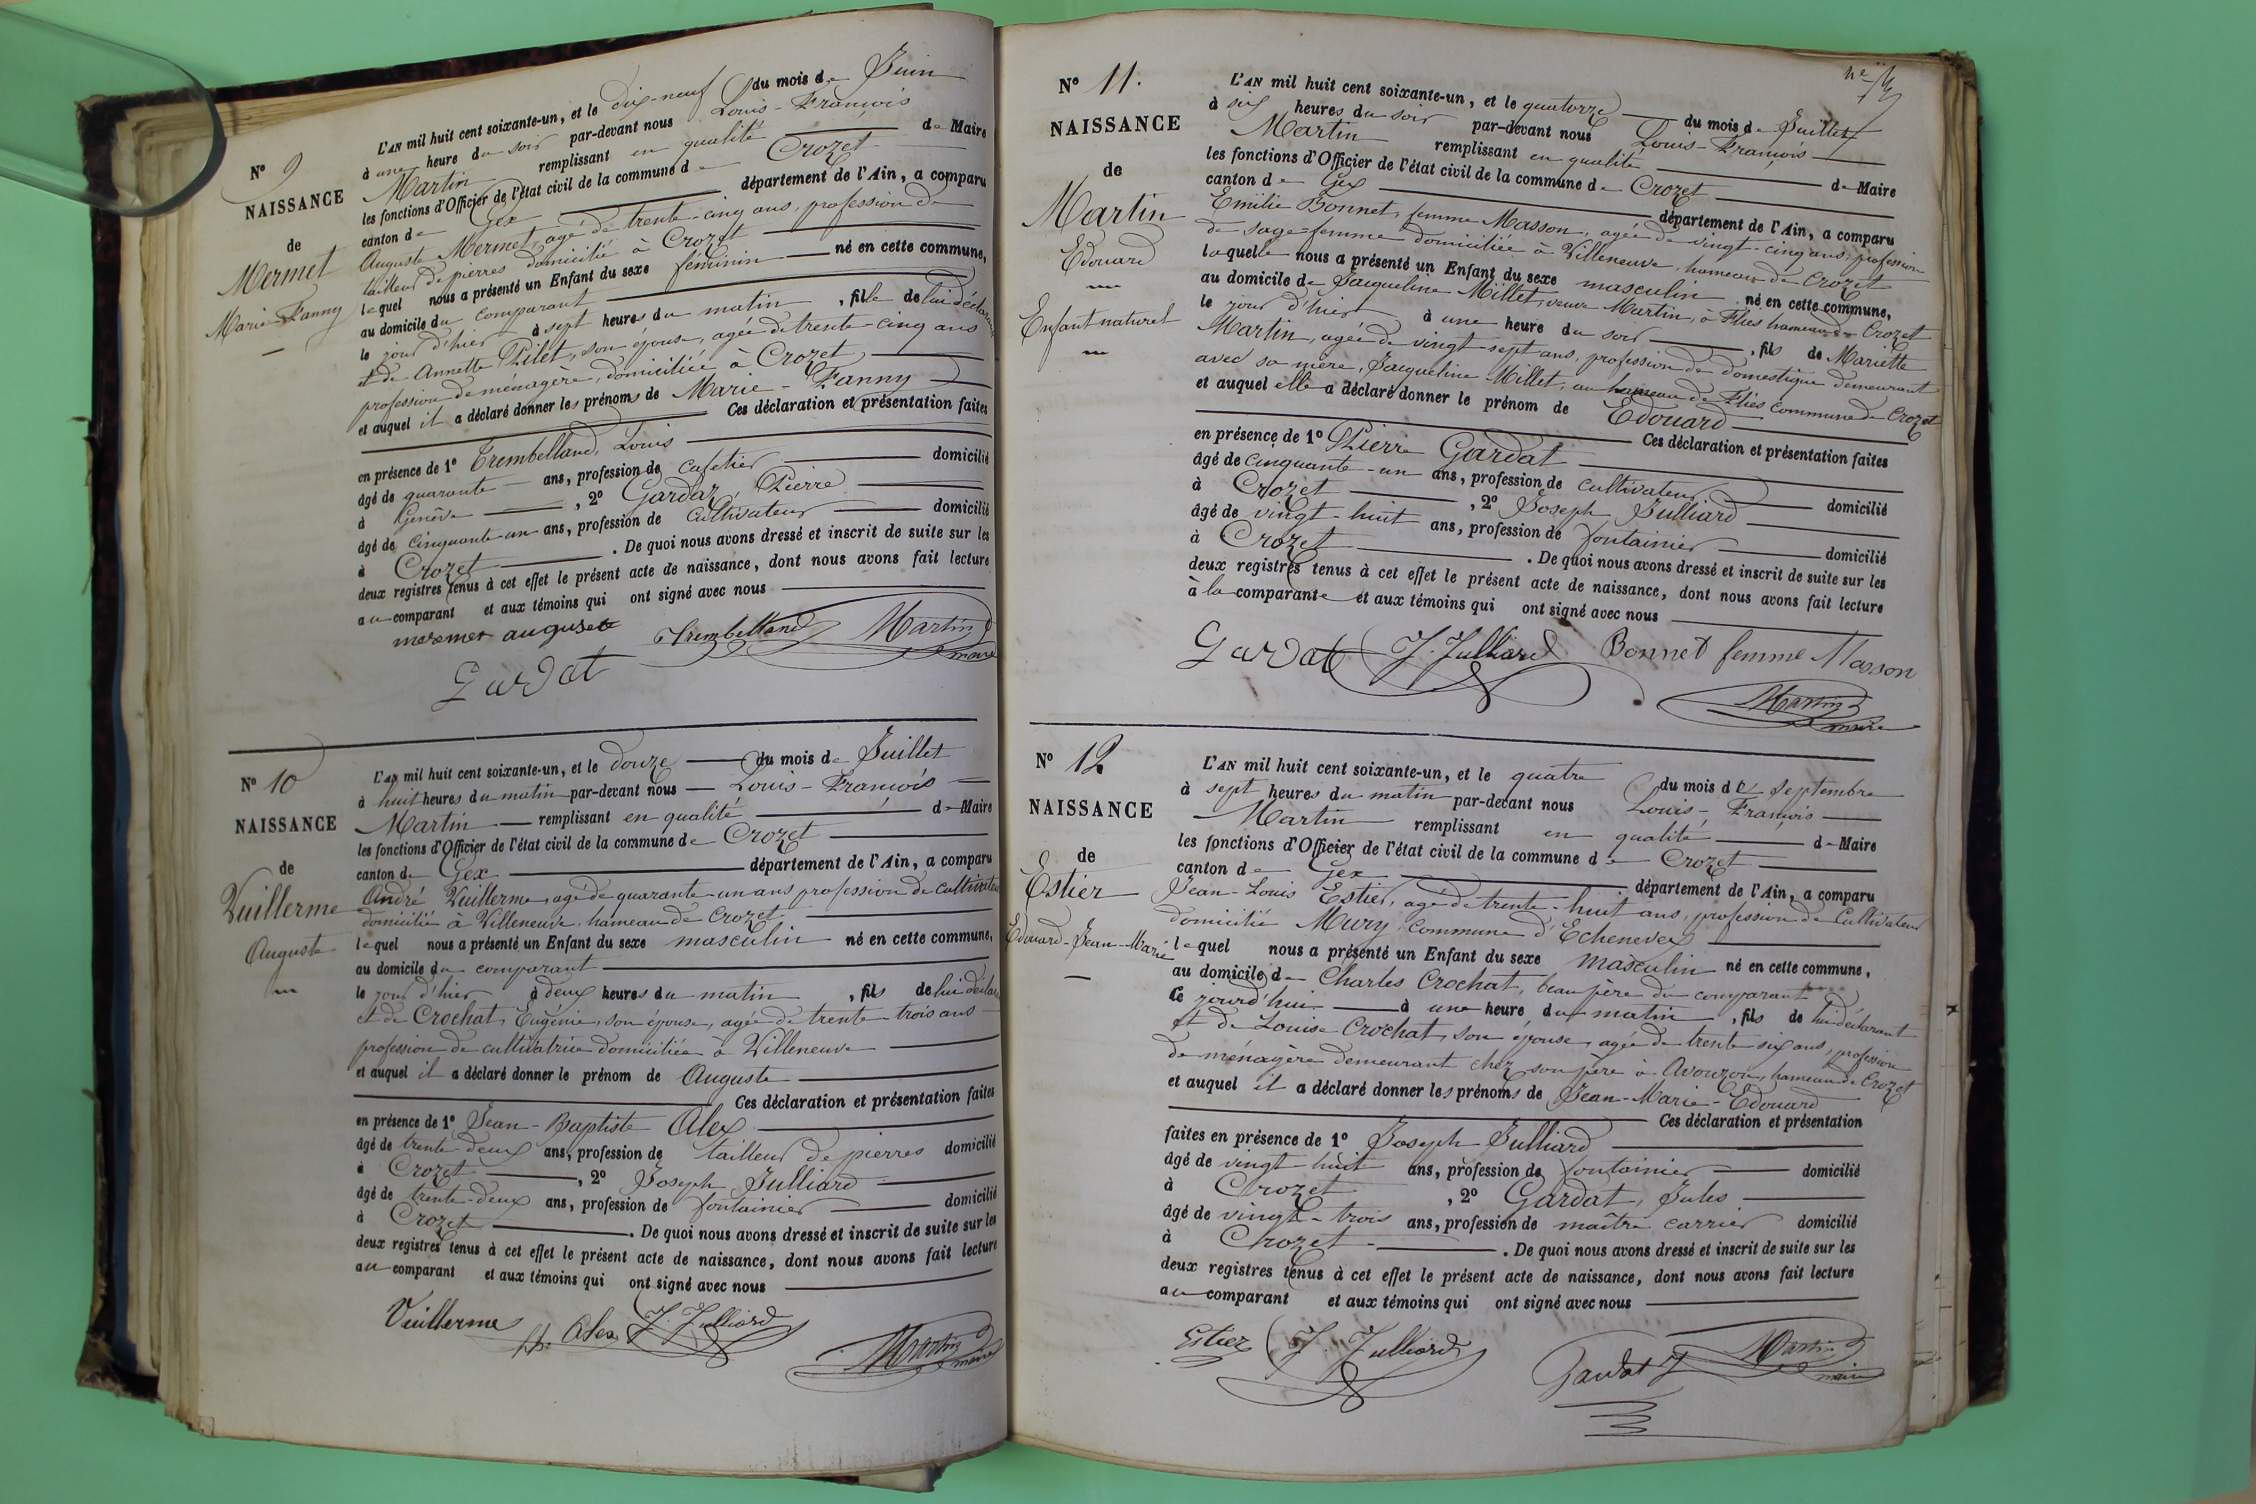 N° 9
NAISSANCE
de
Mermet
Marie-Fanny
L'AN mil huit cent soixante-un, et le dix-neuf du mois de Juin
à une heure du soir par-devant nous Louis-François
Martin remplissant en qualité de Maire
les fonctions d'Officier de l'état civil de la commune de Crozet
canton de Gex département de l'Ain, a comparu
Auguste Mermet, agé de trente-cinq ans, profession de
tailleur de pierres domicilié à Crozet
lequel nous a présenté un Enfant du sexe féminin né en cette commune,
au domicile du comparant
le jour d'hier à sept heures du matin, fille de lui déclarant
et de Annette Pilet, son épouse, agée de trente-cinq ans
profession de ménagère, domiciliée à Crozet
et auquel il a déclaré donner les prénoms de Marie-Fanny
Ces déclaration et présentation faites
en présence de 1° Trembelland, Louis
âgé de quarante ans, profession de cafetier domicilié
à Genève, 2° Gardat, Pierre
âgé de cinquante-un ans, profession de cultivateur domicilié
à Crozet. De quoi nous avons dressé et inscrit de suite sur les
deux registres tenus à cet effet le présent acte de naissance, dont nous avons fait lecture
au comparant et aux témoins qui ont signé avec nous
mermet auguste Trembelland Martin
maire
Gardat
N° 10
NAISSANCE
de
Vuillerme
Auguste
L'AN mil huit cent soixante-un, et le douze du mois de Juillet
à huit heures du matin par-devant nous Louis-François
Martin remplissant en qualité de Maire
les fonctions d'Officier de l'état civil de la commune de Crozet
canton de Gex département de l'Ain, a comparu
André Vuillerme, agé de quarante-un ans profession de cultivateur
domicilié à Villeneuve hameau de Crozet
lequel nous a présenté un Enfant du sexe masculin né en cette commune,
au domicile du comparant
le jour d'hier à deux heures du matin, fils de lui déclarant
et de Crochat, Eugénie, son épouse, agée de trente-trois ans
profession de cultivatrice domiciliée à Villeneuve
et auquel il a déclaré donner le prénom de Auguste
Ces déclaration et présentation faites
en présence de 1° Jean-Baptiste Alex
âgé de trente-deux ans, profession de tailleur de pierres domicilié
à Crozet, 2° Joseph Julliard
âgé de trente-deux ans, profession de fontainier domicilié
à Crozet. De quoi nous avons dressé et inscrit de suite sur les
deux registres tenus à cet effet le présent acte de naissance, dont nous avons fait lecture
au comparant et aux témoins qui ont signé avec nous
Vuillerme Alex J. Julliard Martin
maire
N° 11.
NAISSANCE
de
Martin
Edouard
Enfant naturel
L'AN mil huit cent soixante-un, et le quatorze du mois de Juillet
à six heures du soir par-devant nous Louis-François
Martin remplissant en qualité de Maire
les fonctions d'Officier de l'état civil de la commune de Crozet
canton de Gex département de l'Ain, a comparu
Emilie Bonnet, femme Masson, agée de vingt-cinq ans, profession
de sage-femme domiciliée à Villeneuve, hameau de Crozet
laquelle nous a présenté un Enfant du sexe masculin né en cette commune,
au domicile de Jacqueline Millet, veuve Martin, à Fliés hameau de Crozet
le jour d'hier à une heure du soir, fils de Mariette
Martin, agée de vingt-sept ans, profession de domestique demeurant
avec sa mère, Jacqueline Millet, au hameau de Fliés commune de Crozet
et auquel elle a déclaré donner le prénom de Edouard
Ces déclaration et présentation faites
en présence de 1° Pierre Gardat
âgé de cinquante-un ans, profession de cultivateur domicilié
à Crozet, 2° Joseph Julliard
âgé de vingt-huit ans, profession de fontainier domicilié
à Crozet. De quoi nous avons dressé et inscrit de suite sur les
deux registres tenus à cet effet le présent acte de naissance, dont nous avons fait lecture
à la comparante et aux témoins qui ont signé avec nous
Gardat J. Julliard Bonnet femme Masson
Martin
maire
N° 12
NAISSANCE
de
Estier
Edouard-Jean-Marie
L'AN mil huit cent soixante-un, et le quatre du mois de Septembre
à sept heures du matin par-devant nous Louis-François
Martin remplissant en qualité de Maire
les fonctions d'Officier de l'état civil de la commune de Crozet
canton de Gex département de l'Ain, a comparu
Jean-Louis Estier, agé de trente-huit ans, profession de Cultivateur
domicilié Mury commune d'Echenevex
lequel nous a présenté un Enfant du sexe masculin né en cette commune,
au domicile de Charles Crochat, beau père du comparant
ce jourd'hui à une heure du matin, fils de lui déclarant
et de Louise Crochat, son épouse, agée de trente six ans, profession
de ménagère demeurant chez son père à Avouzon, hameau de Crozet
et auquel il a déclaré donner les prénoms de Jean-Marie-Edouard
Ces déclaration et présentation
faites en présence de 1° Joseph Julliard
âgé de vingt-huit ans, profession de fontainier domicilié
à Crozet, 2° Gardat, Jules
âgé de vingt-trois ans, profession de maître carrier domicilié
à Crozet. De quoi nous avons dressé et inscrit de suite sur les
deux registres tenus à cet effet le présent acte de naissance, dont nous avons fait lecture
au comparant et aux témoins qui ont signé avec nous
Estier J. Julliard Gardat J Martin
maire